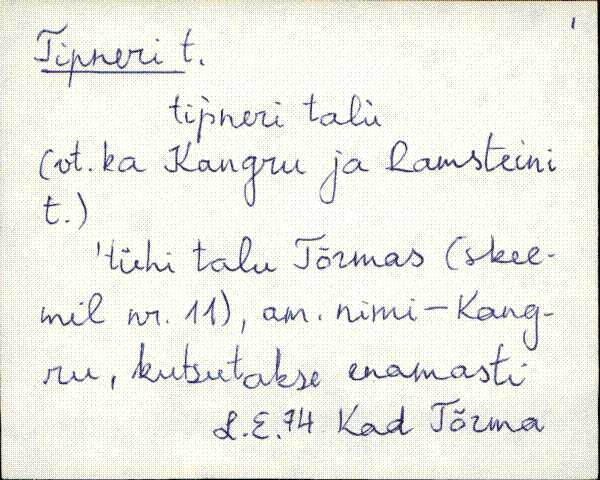 1
Tipneri t.
tipneri talu
(vt. ka Kangru ja Ramsteini
t.)
'tühi talu Tõrmas (skee-
mil nr. 11), am. nimi – Kang-
ru, kutsutakse enamasti
L.E. 74 Kad Tõrma